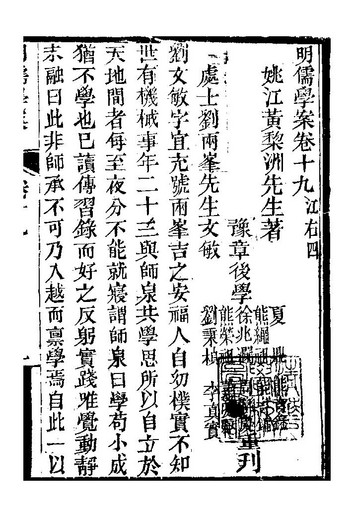 明儒學案卷十九 江右四
姚江黃黎洲先生著
豫章後學
夏鼎
熊繩祖
徐兆瀾
熊榮祖
劉秉楨 李真實
重刊
處士劉兩峯先生文敏
劉文敏字宜充號兩峯吉之安福人自幼樸實不知
世有機械事年二十三與師泉共學思所以自立於
天地間者每至夜分不能就寢謂師泉曰學苟小成
猶不學也已讀傳習錄而好之反躬實踐唯覺動靜
未融曰此非師承不可乃入越而稟學焉自此一以